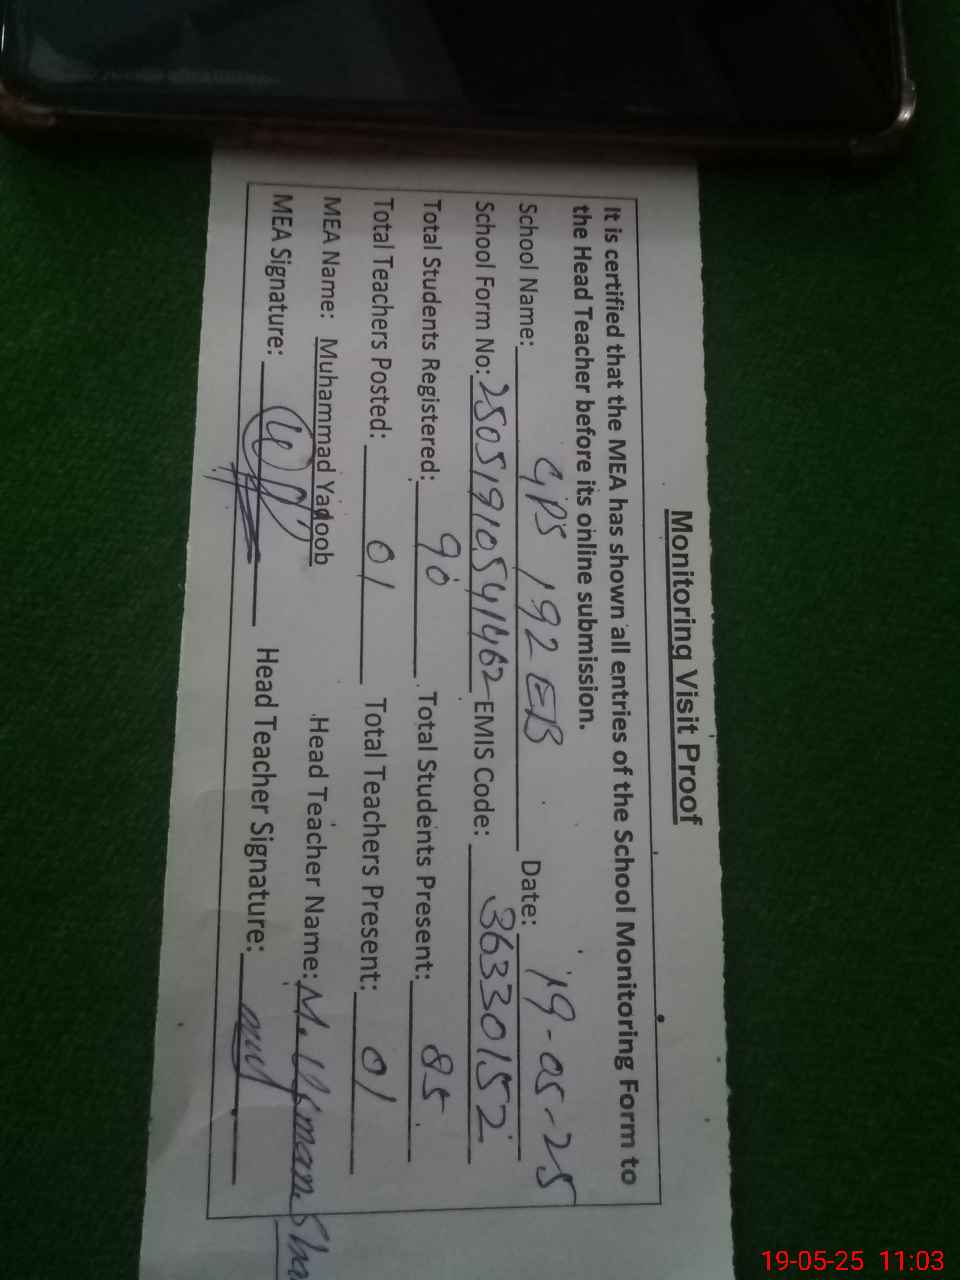 Monitoring Visit Proof
It is certified that the MEA has shown all entries of the School Monitoring Form to
the Head Teacher before its online submission.
School Name: GPS 192 EB Date: 19-05-25
School Form No: 25051910541462 EMIS Code: 36330152
Total Students Registered: 90 Total Students Present: 85
Total Teachers Posted: 01 Total Teachers Present: 01
MEA Name: Muhammad Yadoob Head Teacher Name: M. Usman
MEA Signature: Head Teacher Signature:
19-05-25 11:03